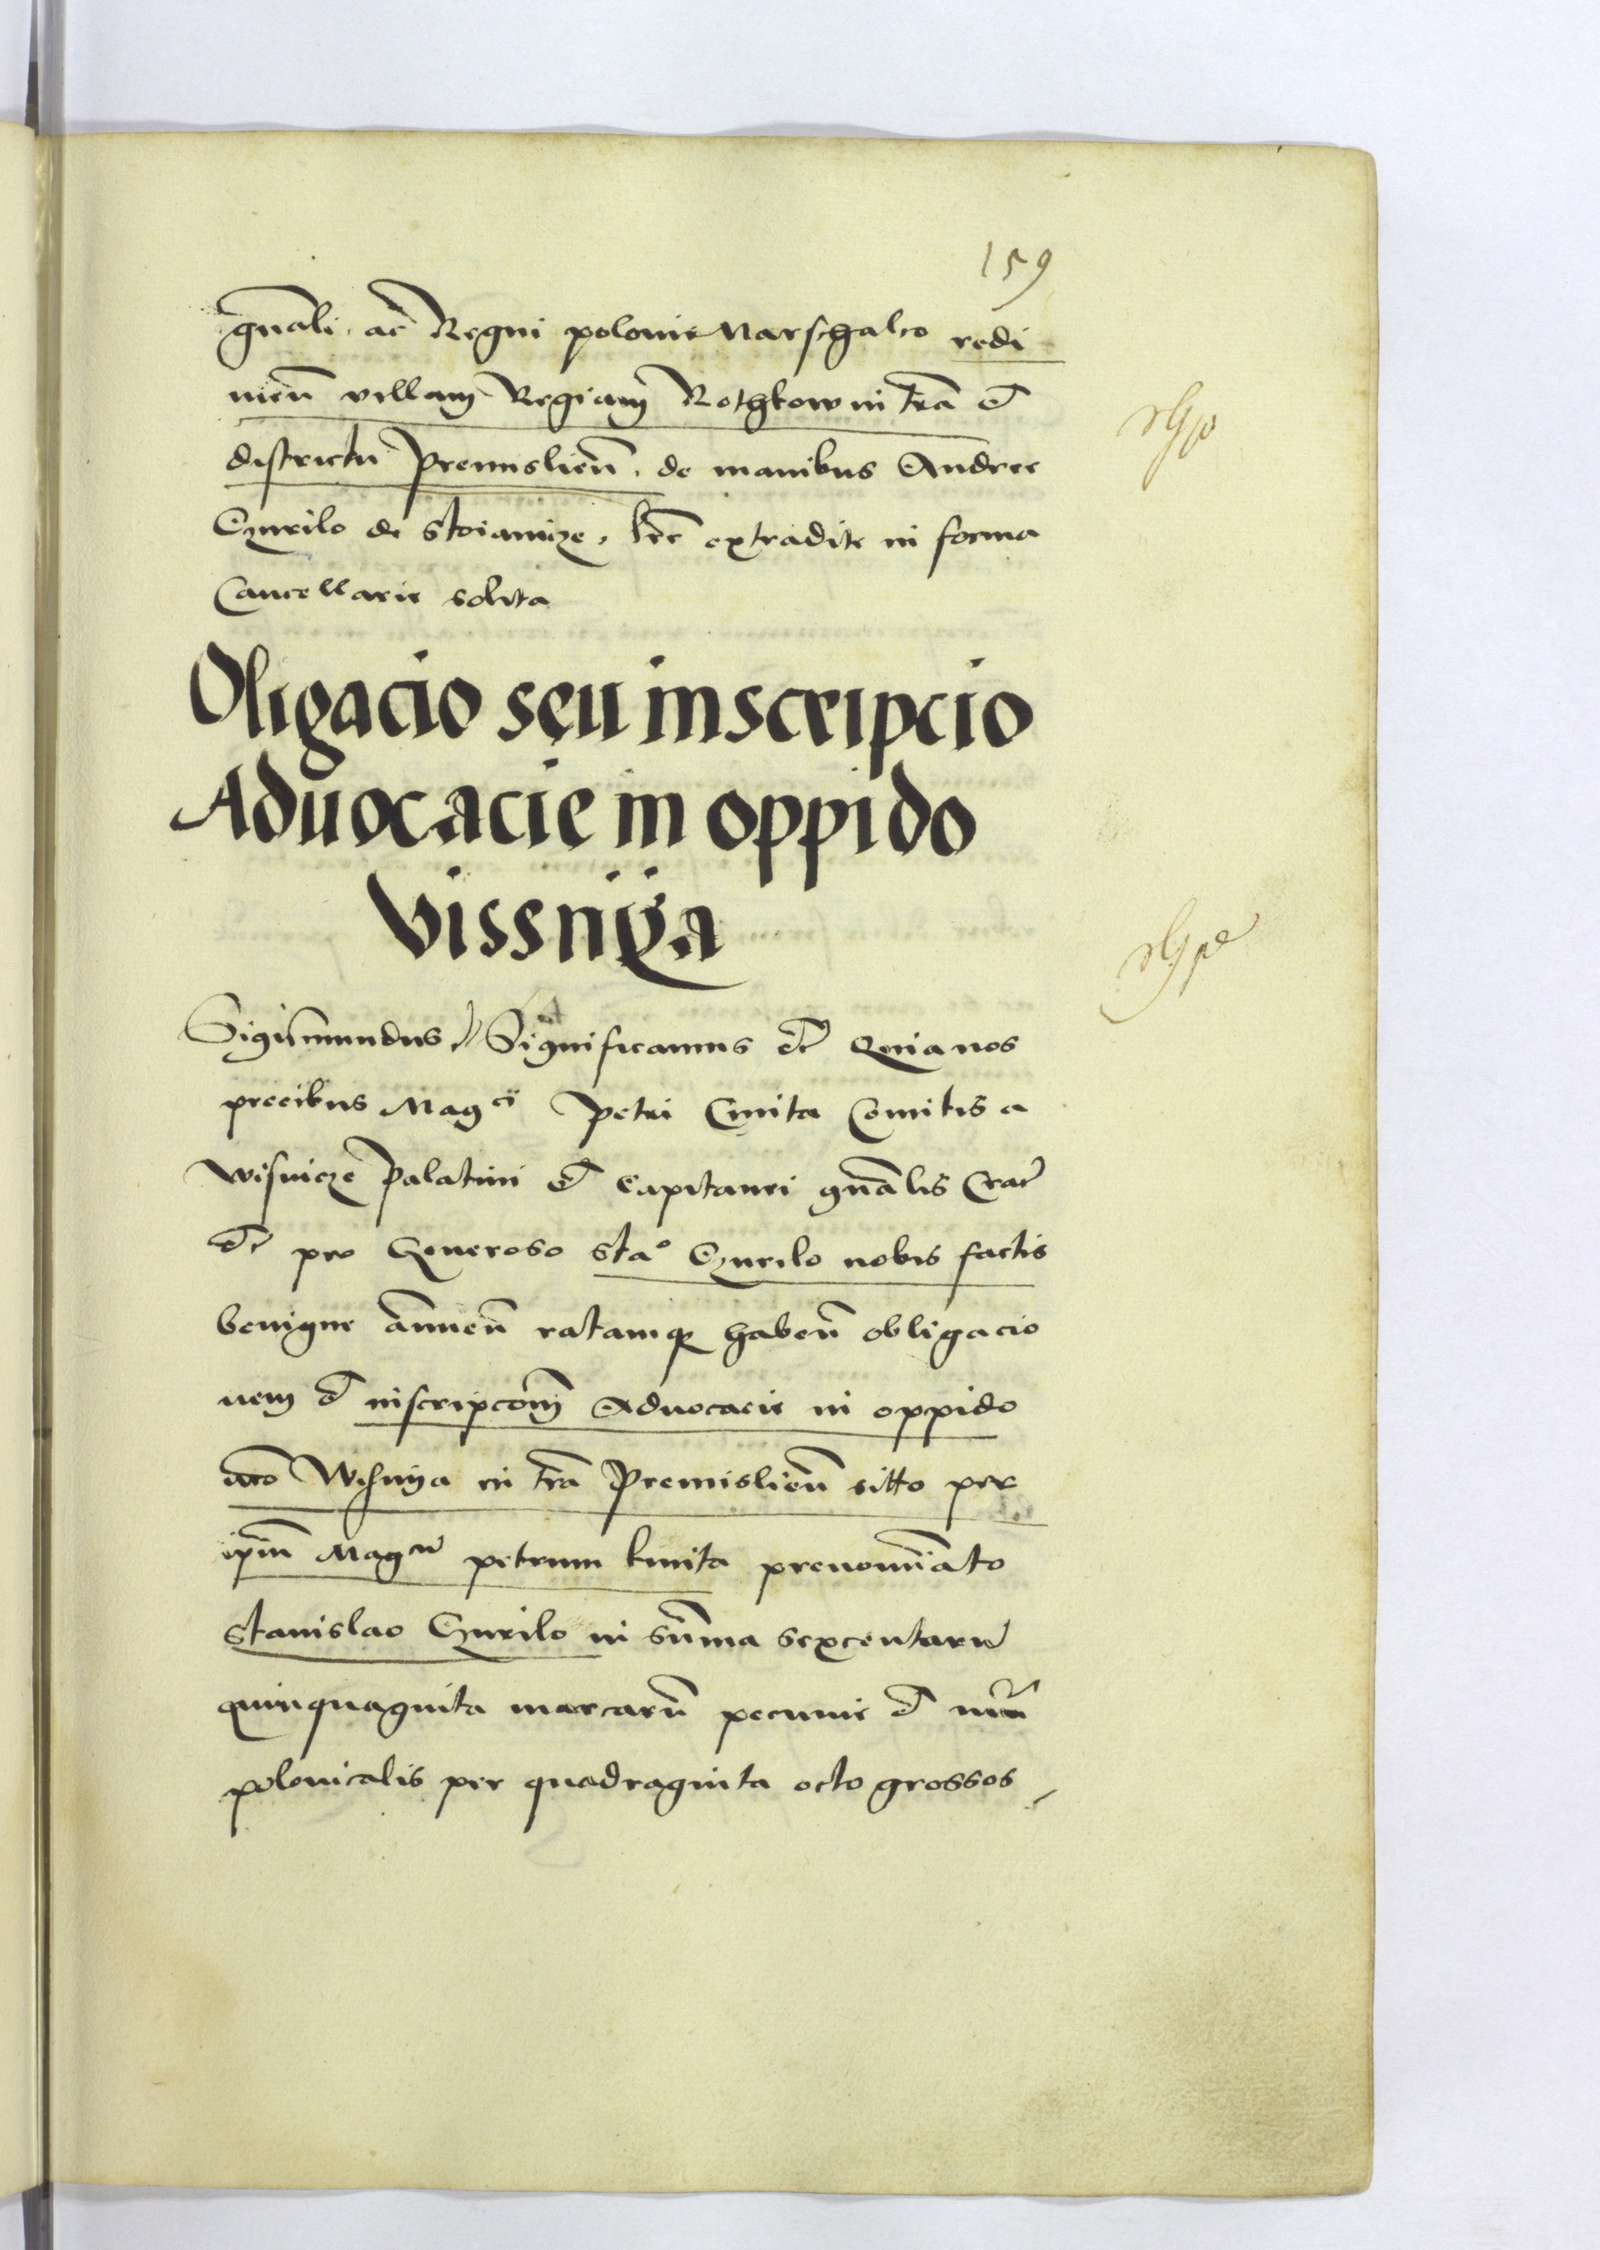 159
gnāli ac Regni polonie Marschalco redi
men̄ villam Regiam Rothkow in trā et
districtu Premislien̄. de manibus Andree
Czurilo de Stoiancze, trē extradite in forma
Cancellarie solita
Oligacio seu inscripcio
Aduocacie in oppido
Vissnÿa
Sigismundus Significamus etc Quia nos
precibus Magci Petri Cmita Comitis a
Wisnicze Palatini et Capitanei gnālis Crac
etc pro Generoso Stao Czurilo nobis factis
benigne annuen̄ ratamqȝ haben̄ obligacio
nem et inscripcōm Aduocacie in oppido
nrō Wisnÿa in trā Premislien̄ sitto per
ipm̄ Magcu petrum kmita prenomiāto
Stanislao Czurilo in sum̄ma sexcentaru
quinquaginta marcaru̅ pecunie et
polonicalis per quadraginta octo grossos